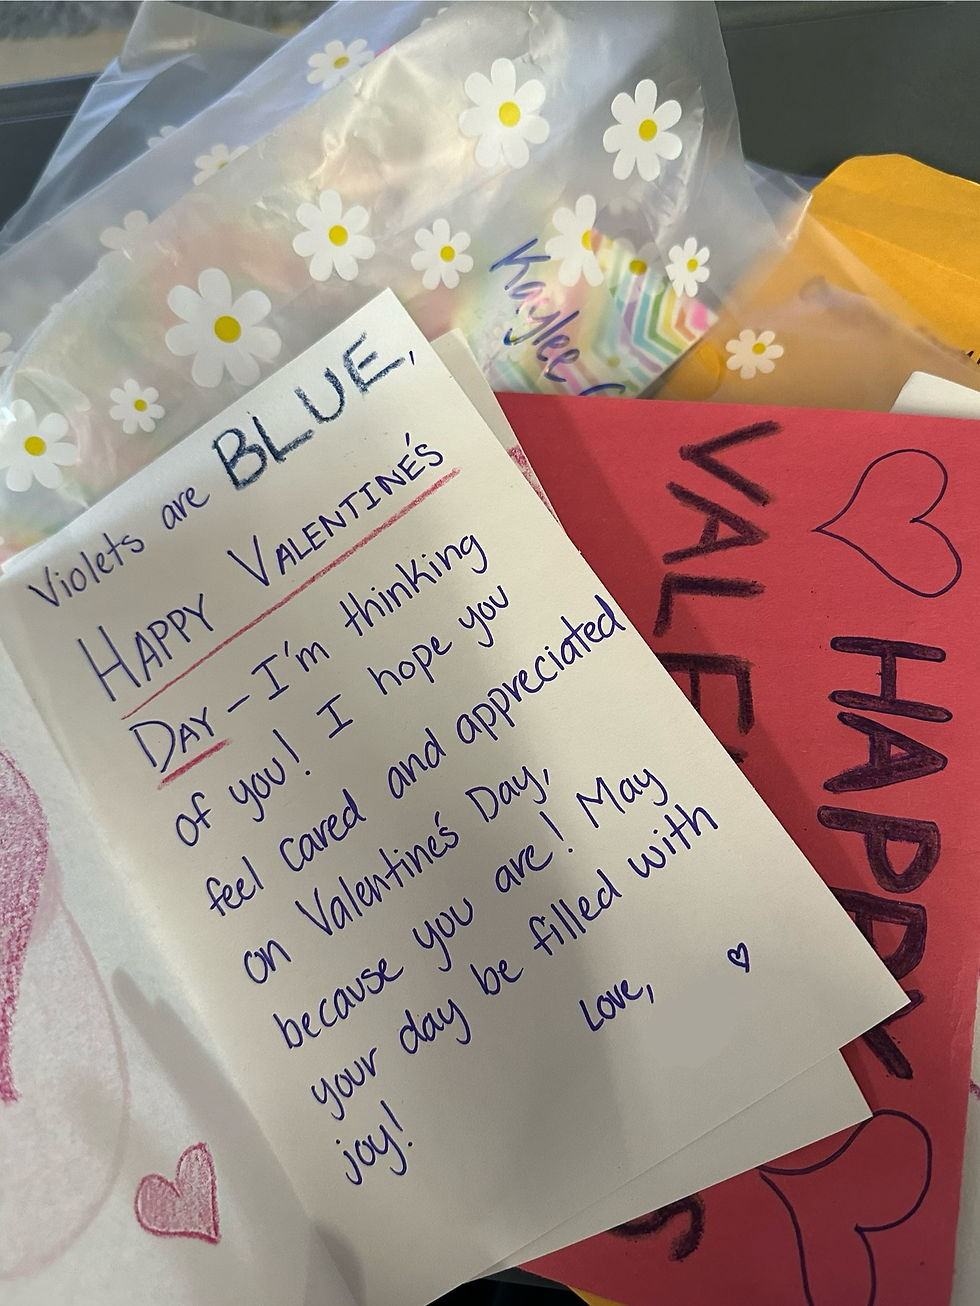 Violets are BLUE,
HAPPY VALENTINE'S
DAY - I'm thinking
of you! I hope you
feel cared and appreciated
on Valentine's Day,
because you are! May
your day be filled with
joy!
Love,
Kaylee
HAPPY